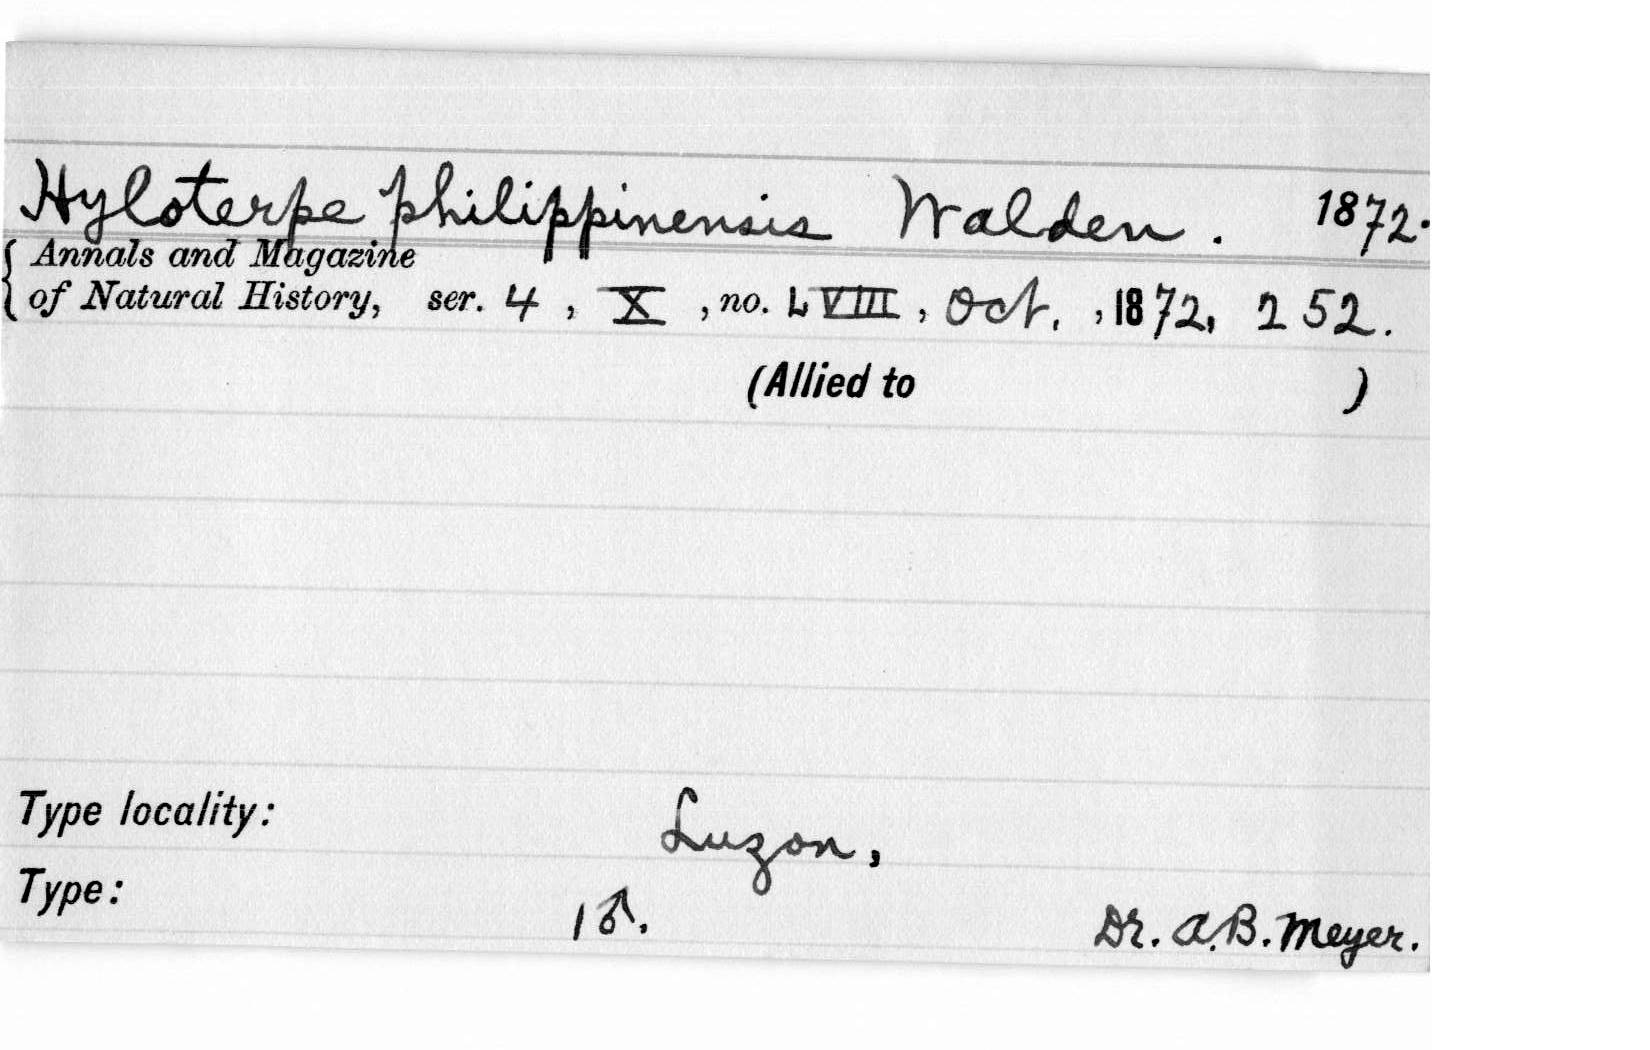 Hyloterpe philippinensis Walden. 1872.
{ Annals and Magazine
of Natural History, ser. 4, X, no. LVIII, Oct., 1872, 252.
(Allied to )
Type locality: Luzon,
Type: 1♂. Dr. A.B. Meyer.